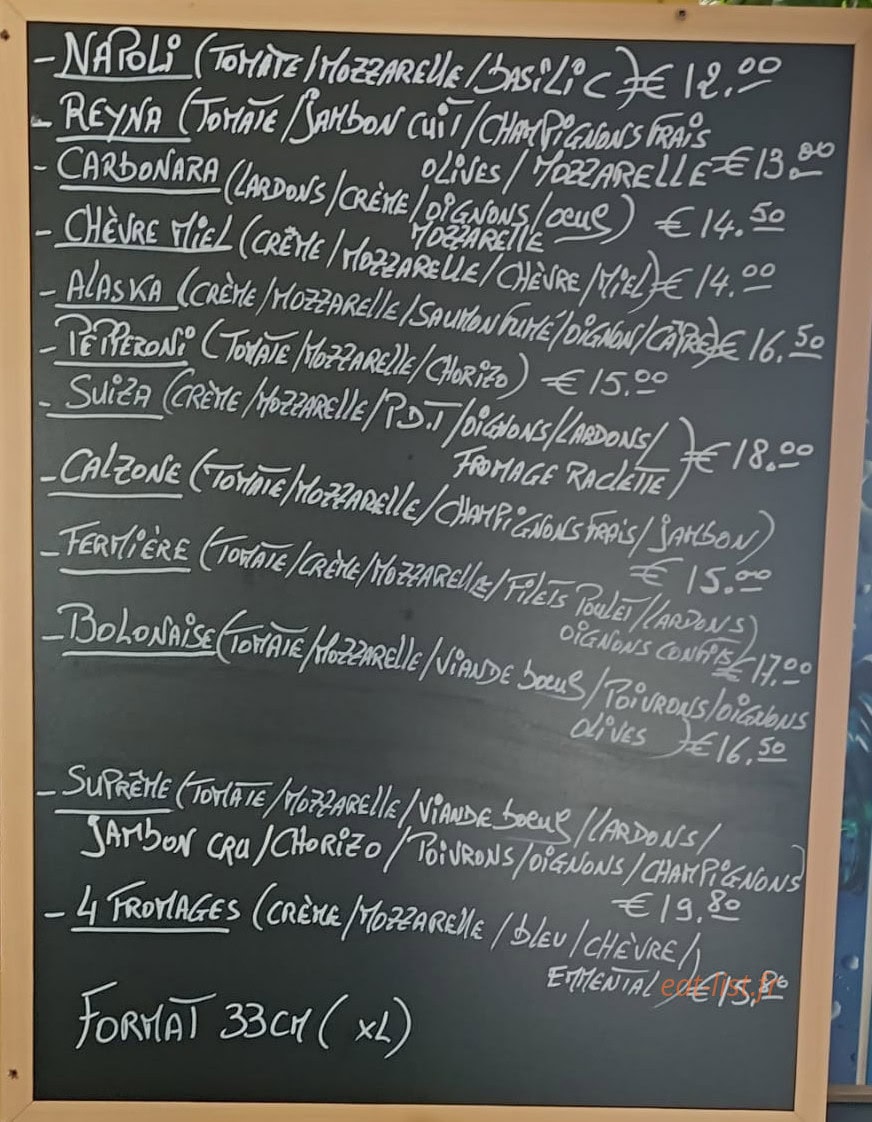 - NAPOLI (TOMATE/MOZZARELLE/BASILIC) € 12.00
- REYNA (TOMATE/JAMBON CUIT/CHAMPIGNONS FRAIS
OLIVES/MOZZARELLE € 13.00
- CARBONARA (LARDONS/CRÈME/OIGNONS/OEUF) € 14.50
MOZZARELLE
- CHÈVRE MIEL (CRÈME/MOZZARELLE/CHÈVRE/MIEL) € 14.00
- ALASKA (CRÈME/MOZZARELLE/SAUMON FUMÉ/OIGNON/CÂPRE) € 16.50
- PEPPERONI (TOMATE/MOZZARELLE/CHORIZO) € 15.00
- SUIZA (CRÈME/MOZZARELLE/P.D.T/OIGNONS/LARDONS/
FROMAGE RACLETTE) € 18.00
- CALZONE (TOMATE/MOZZARELLE/CHAMPIGNONS FRAIS/JAMBON)
€ 15.00
- FERMIÈRE (TOMATE/CRÈME/MOZZARELLE/FILETS POULET/LARDONS)
OIGNONS CONFITS € 17.00
- BOLONAISE (TOMATE/MOZZARELLE/VIANDE BOEUF/POIVRONS/OIGNONS
OLIVES) € 16.50
- SUPRÊME (TOMATE/MOZZARELLE/VIANDE BOEUF/LARDONS/
JAMBON CRU/CHORIZO/POIVRONS/OIGNONS/CHAMPIGNONS)
€ 19.80
- 4 FROMAGES (CRÈME/MOZZARELLE/BLEU/CHÈVRE/)
EMMENTAL) € 15.80
eat-list.fr
FORMAT 33CM (XL)